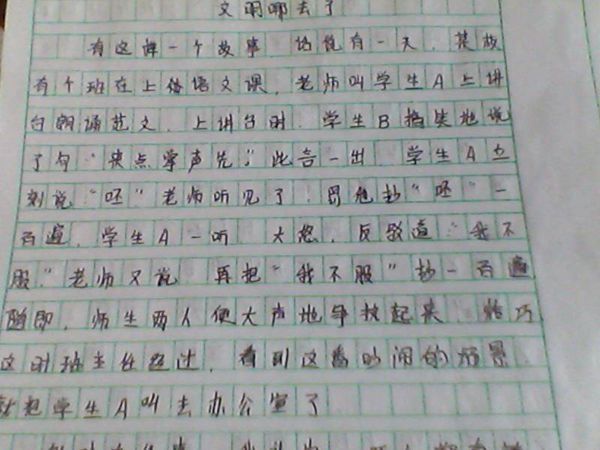 文明哪去了
有这样一个故事，话说有一天，某校
有个班在上格语文课，老师叫学生A上讲
台朗诵范文，上讲台时，学生B搞笑地说
了句“来点掌声先，”此言一出，学生A立
刻说“呸”老师听见了，罚他抄“呸”一
百遍，学生A一听，大怒，反驳道：“我不
服”老师又说，再把“我不服”抄一百遍
随即，师生两人便大声地争执起来，恰巧
这时班主任经过，看到这番吵闹的场景，
就把学生A叫去办公室了